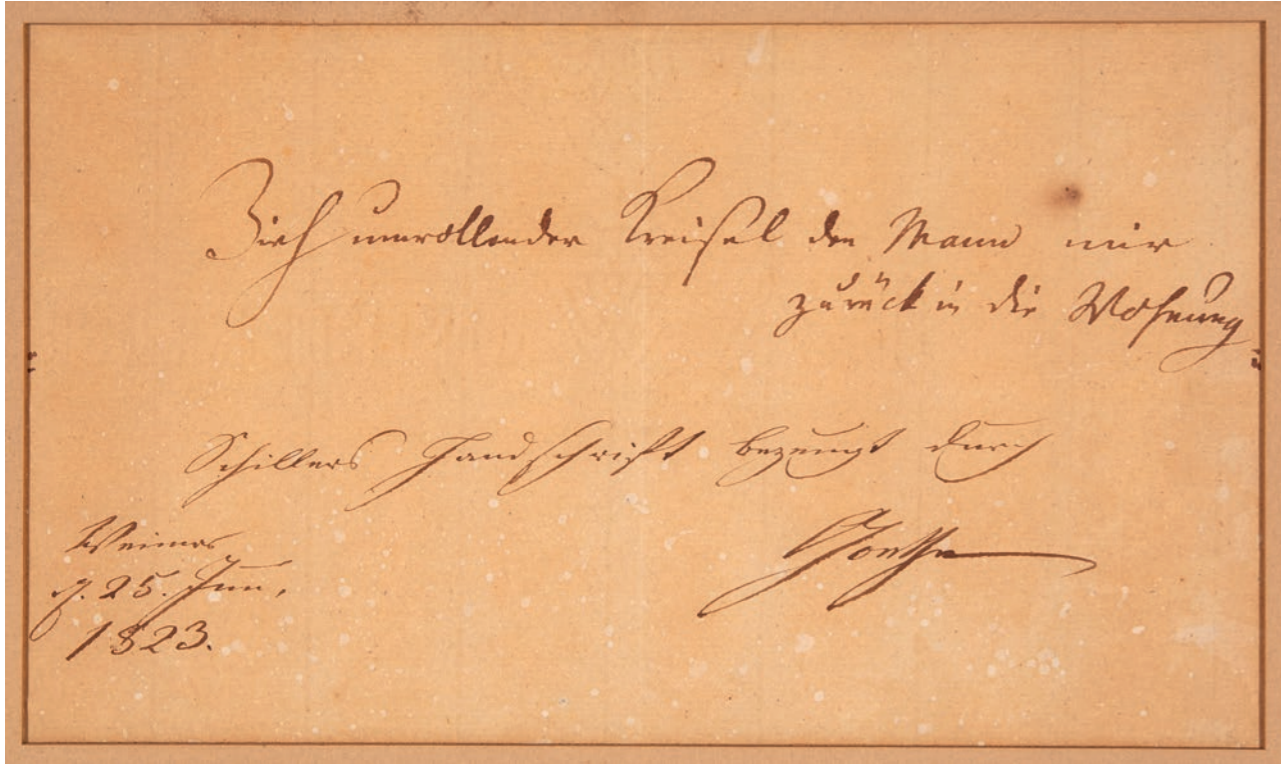 Zieh umrollender Kreisel den Mann mir
zurück in die Wohnung
Schillers Handschrift bezeugt durch
Weimar
d. 25. Jun,
1823.
Goethe